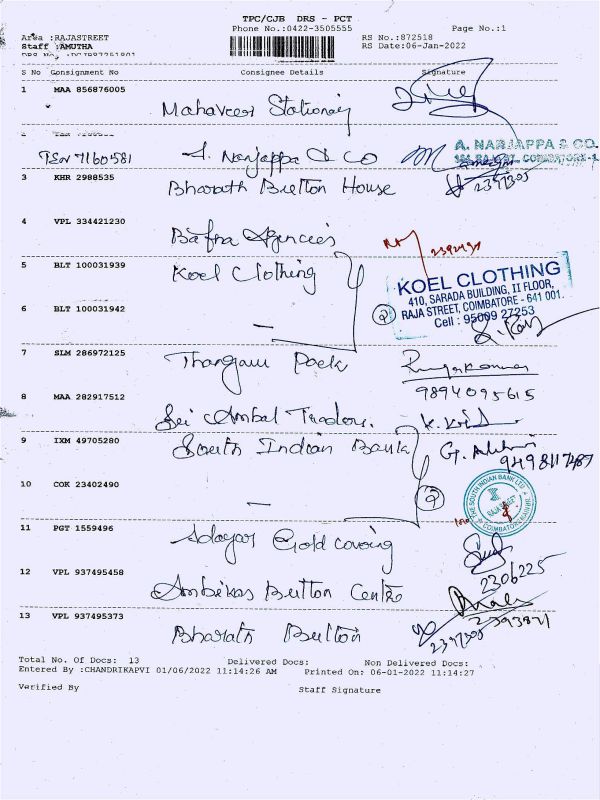 TPC/CJB DRS - PCT
Phone No.:0422-3505555 Page No.:1
Area :RAJASTREET RS No.:872518
Staff :AMUTHA RS Date:06-Jan-2022
S No Consignment No Consignee Details Signature
1 MAA 856876005
Mahaveer Stationary
2
TSR 7160581 A. Nanjappa & Co
A. NANJAPPA & CO.
3 KHR 2988535 Bharath Button House 2397305
4 VPL 334421230
Bafna Agencies
5 BLT 100031939 Koel Clothing
KOEL CLOTHING
410, SARADA BUILDING, II FLOOR,
RAJA STREET, COIMBATORE - 641 001.
Cell : 95009 27253
6 BLT 100031942 — 2
7 SLM 286972125 Thangam Pack
9894095615
8 MAA 282917512
Sri Ambal Traders.
9 IXM 49705280 South Indian Bank
10 COK 23402490 — 2
THE SOUTH INDIAN BANK LTD
RAJA STREET
COIMBATORE
11 PGT 1559496 Adayar Gold covering
2306225
12 VPL 937495458 Ambikas Button Centre
13 VPL 937495373 Bharath Button 2397305
Total No. Of Docs: 13 Delivered Docs: Non Delivered Docs:
Entered By :CHANDRIKAPVI 01/06/2022 11:14:26 AM Printed On: 06-01-2022 11:14:27
Verified By Staff Signature